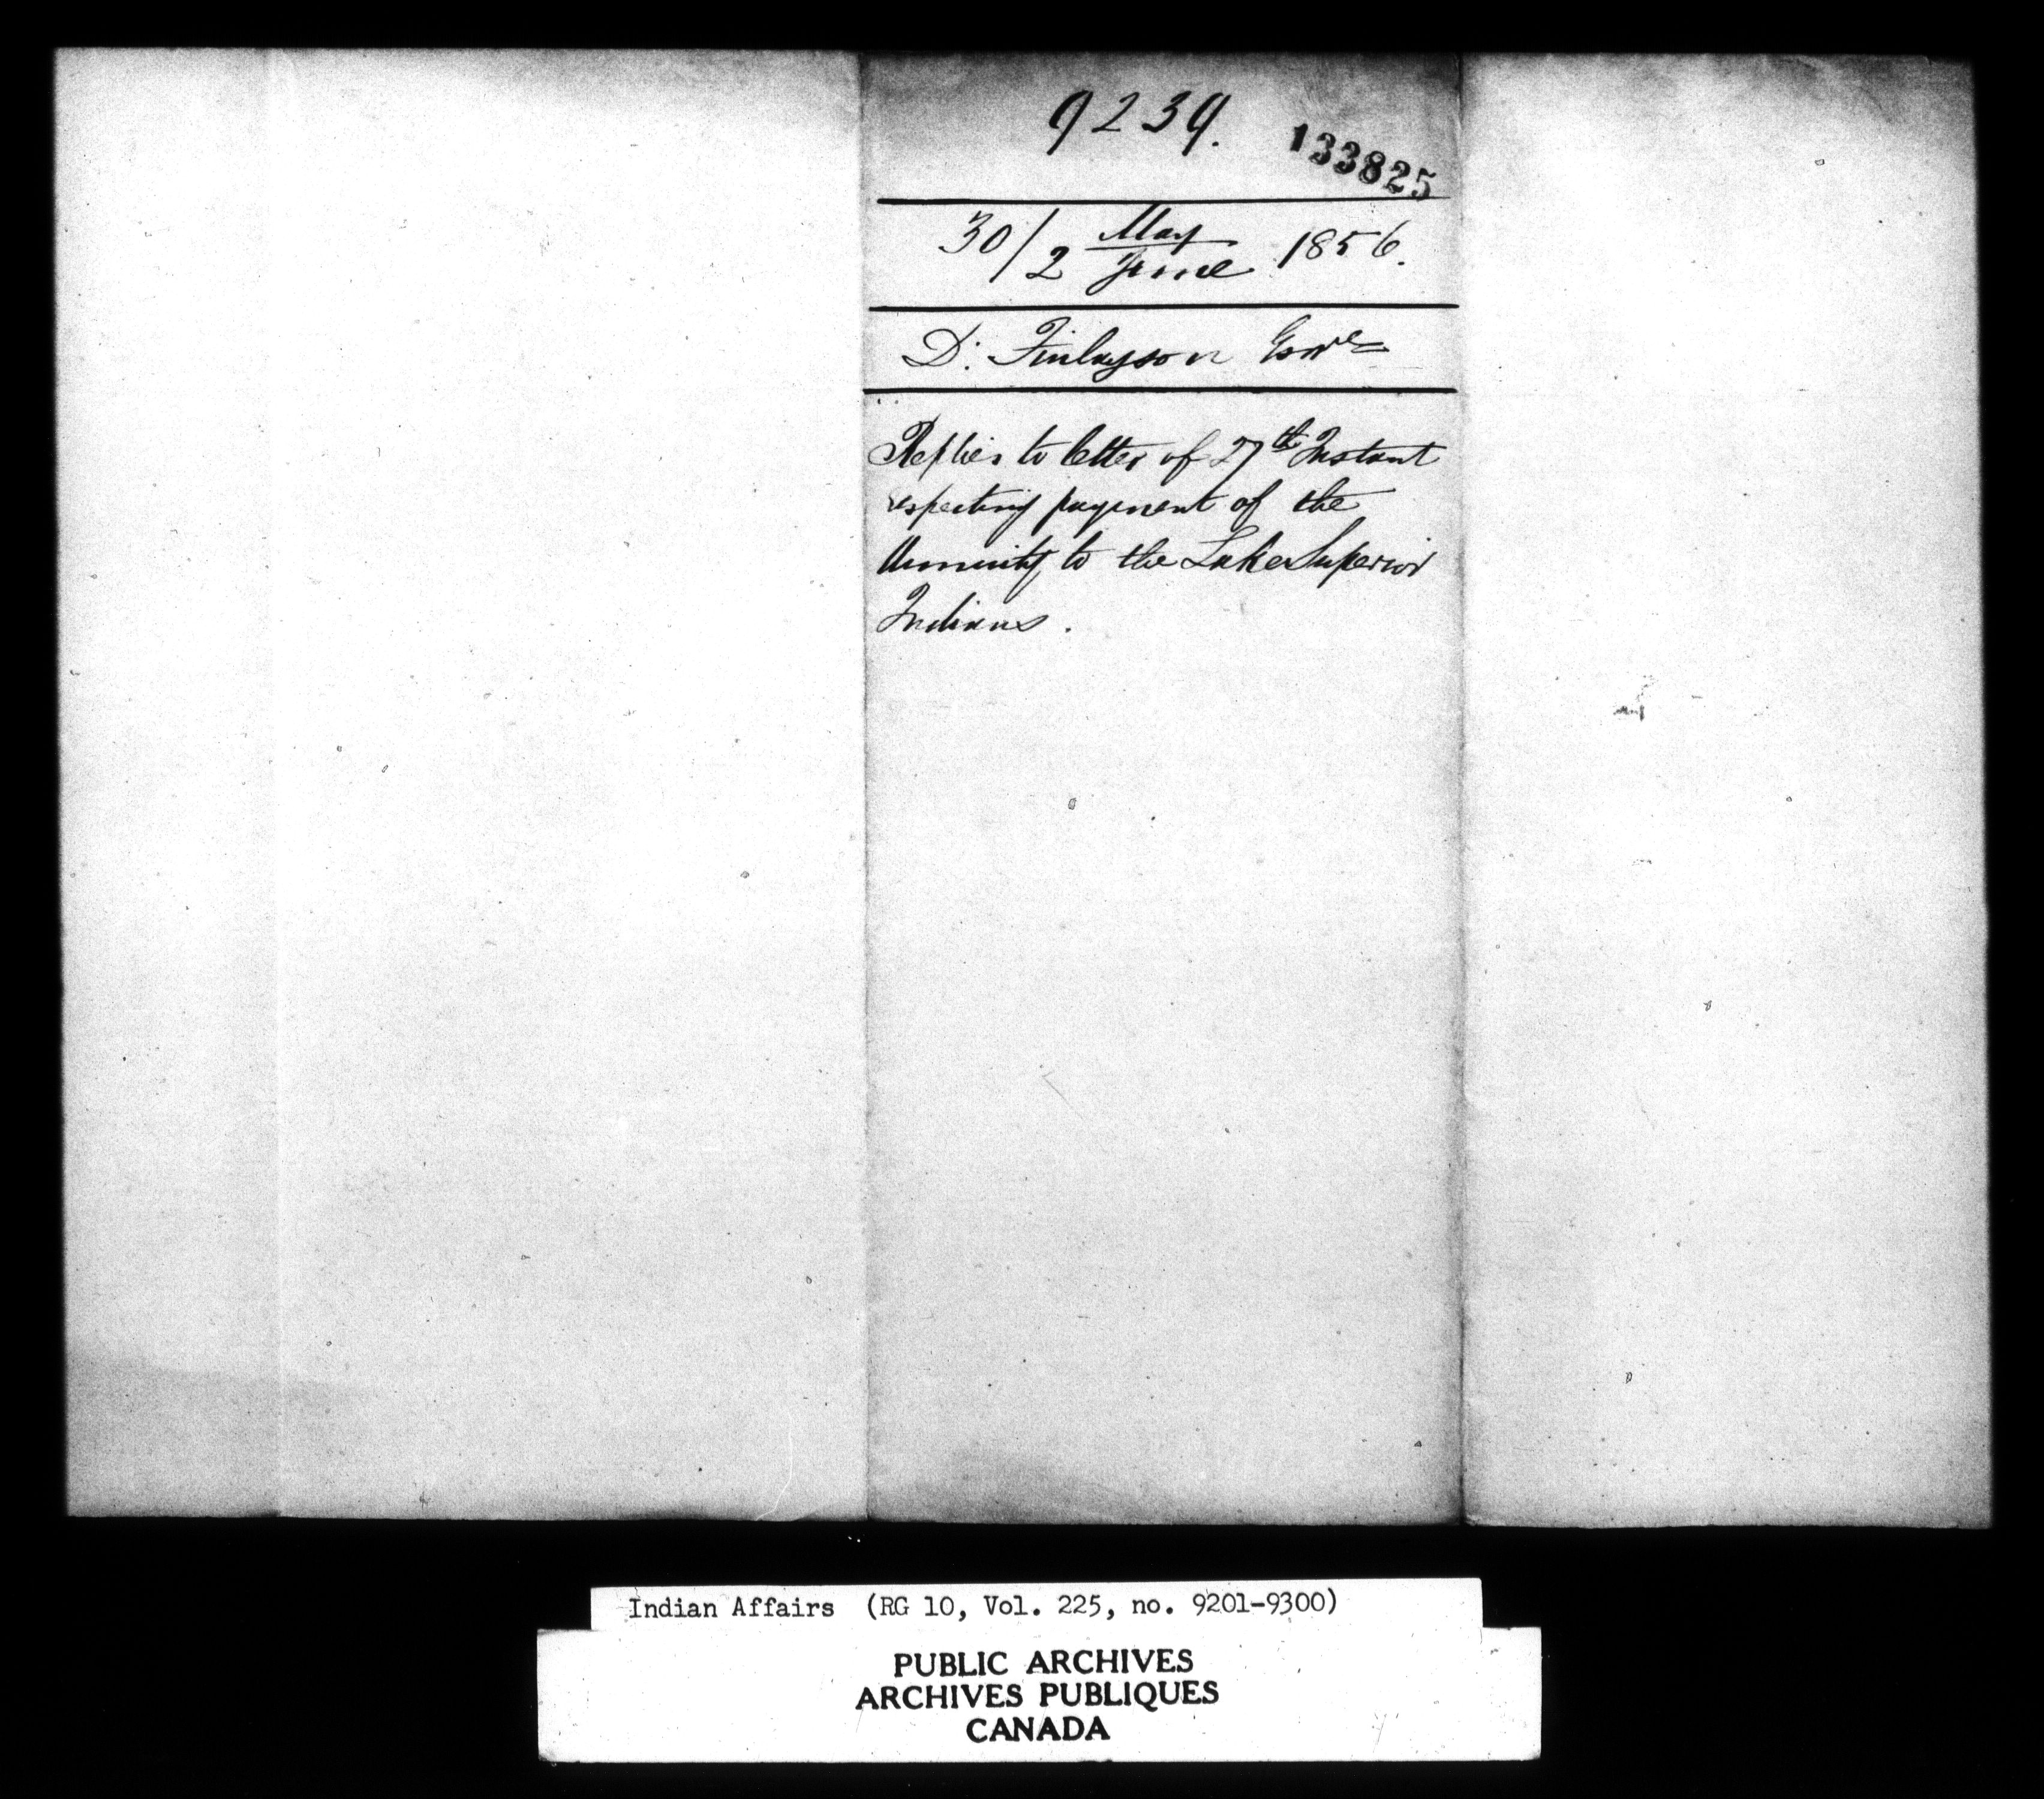 9239.
133825
30/2 May/June 1856.
D. Finlayson Esqre
Replies to letter of 27th Instant
respecting payment of the
Annuity to the Lake Superior
Indians.
Indian Affairs (RG 10, Vol. 225, no. 9201-9300)
PUBLIC ARCHIVES
ARCHIVES PUBLIQUES
CANADA